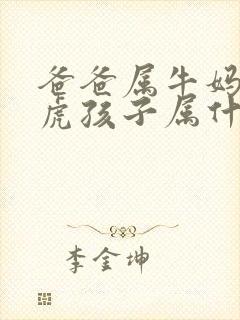 爸爸属牛妈
虎孩子属什
李金坤